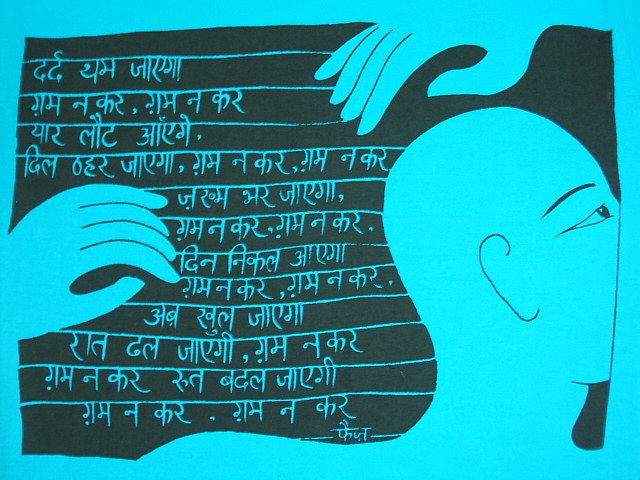 दर्द थम जाएगा
ग़म न कर, ग़म न कर
यार लौट आएँगे,
दिल ठहर जाएगा, ग़म न कर, ग़म न कर
ज़ख्म भर जाएगा,
ग़म न कर, ग़म न कर.
दिन निकल आएगा
ग़म न कर, ग़म न कर.
अब्र खुल जाएगा
रात ढल जाएगी, ग़म न कर
ग़म न कर रुत बदल जाएगी
ग़म न कर . ग़म न कर
—फ़ैज़—